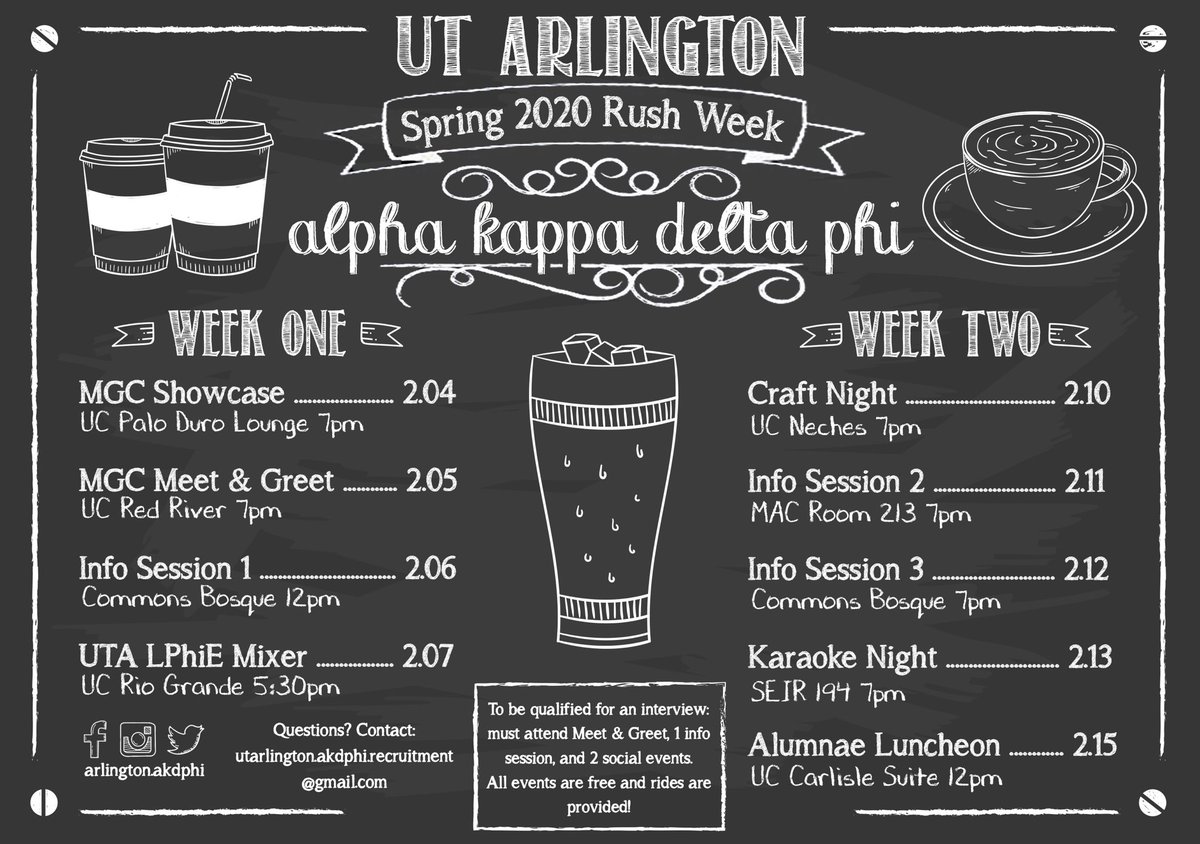 UT ARLINGTON
Spring 2020 Rush Week
alpha kappa delta phi
WEEK ONE
MGC Showcase ........................ 2.04
UC Palo Duro Lounge 7pm
MGC Meet & Greet ............. 2.05
UC Red River 7pm
Info Session 1 ................................. 2.06
Commons Bosque 12pm
UTA LPhiE Mixer ................... 2.07
UC Rio Grande 5:30pm
arlington.akdphi
Questions? Contact:
utarlington.akdphi.recruitment
@gmail.com
To be qualified for an interview:
must attend Meet & Greet, 1 info
session, and 2 social events.
All events are free and rides are
provided!
WEEK TWO
Craft Night .................................... 2.10
UC Neches 7pm
Info Session 2 .............................. 2.11
MAC Room 213 7pm
Info Session 3 .............................. 2.12
Commons Bosque 7pm
Karaoke Night ........................... 2.13
SEIR 194 7pm
Alumnae Luncheon ............. 2.15
UC Carlisle Suite 12pm